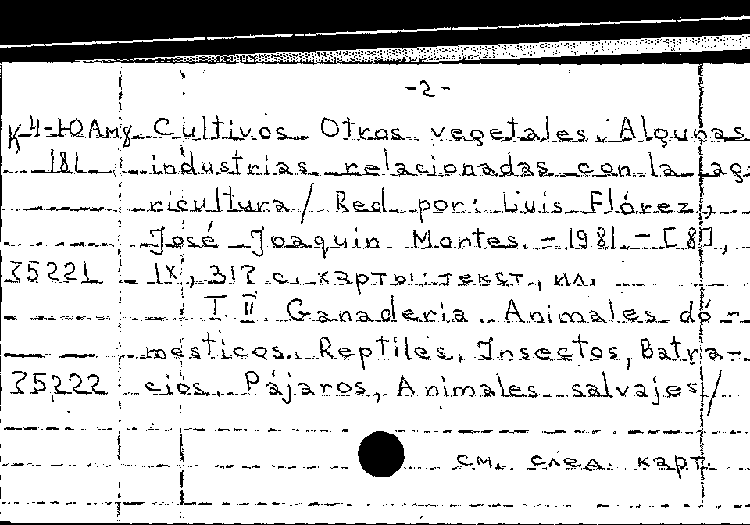 -2-
К4-10 Амд Cultivos. Otros vegetales. Algunas
181 industrias relacionadas con la ag-
ricultura / Red. por: Luis Flórez,
José Joaquin Montes. - 1981. - [8],
75221 IX, 317 с. карты: текст., ил.
T II Ganaderia. Animales dó-
mesticos. Reptiles, Insectos, Batra-
75222 cios. Pájaros, Animales salvajes /
см. след. карт.